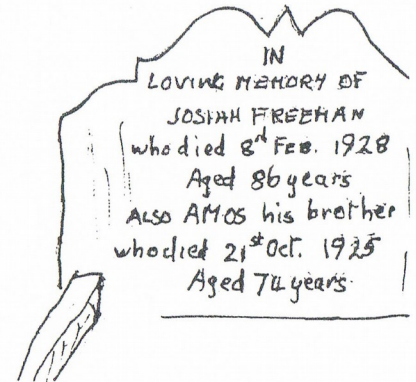 IN
LOVING MEMORY OF
JOSIAH FREEMAN
who died 8rd FEB. 1928
Aged 86 years
ALSO AMOS his brother
who died 21st Oct. 1925
Aged 74 years